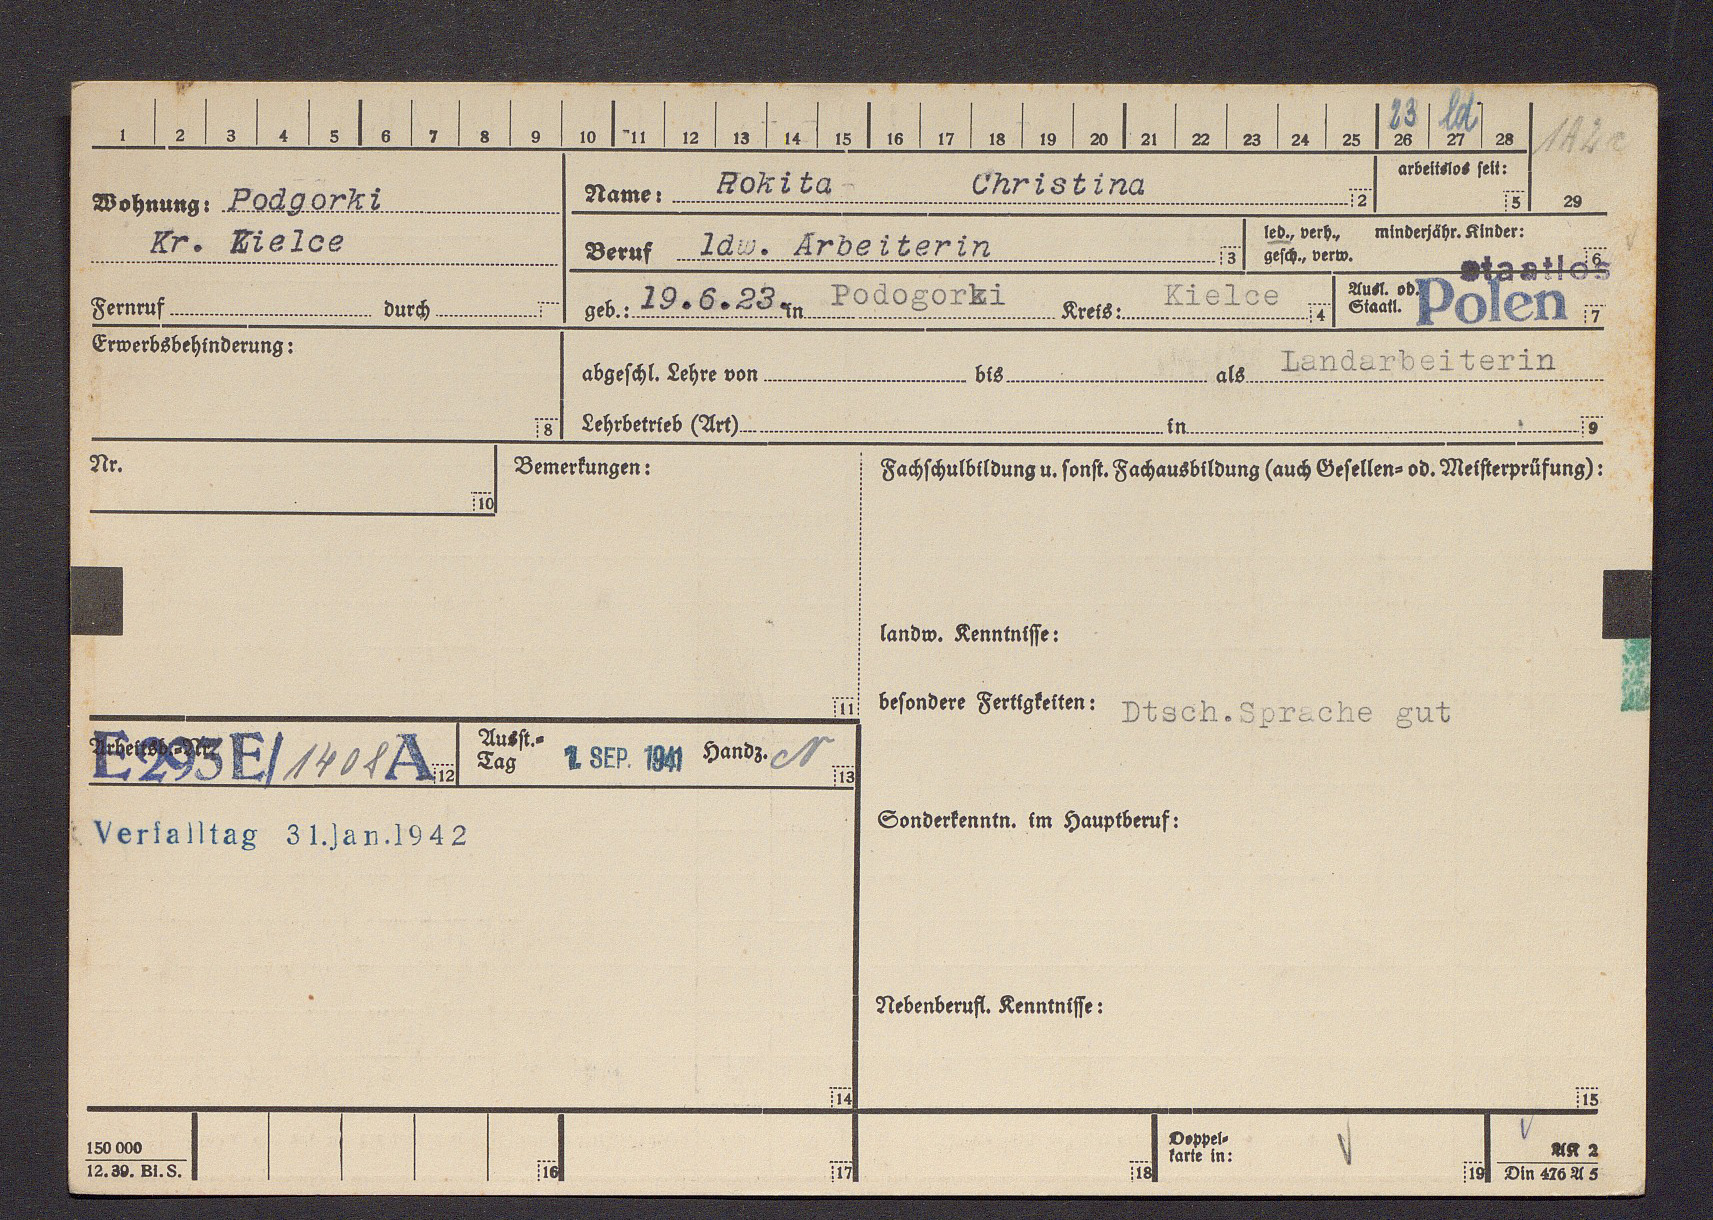 23 ld
1 2 3 4 5 6 7 8 9 10 11 12 13 14 15 16 17 18 19 20 21 22 23 24 25 26 27 28
1A2c
Wohnung: Podgorki
Kr. Kielce
Name: Rokita Christina 2
arbeitslos seit: 5
29
Beruf ldw. Arbeiterin 3
led., verh., minderjähr. Kinder:
gesch., verw. 6
staatlos
Fernruf durch
geb.: 19.6.23. in Podogorki Kreis: Kielce 4
Ausl. od.
Staatl. Polen 7
Erwerbsbehinderung:
8
abgeschl. Lehre von bis als Landarbeiterin
Lehrbetrieb (Art) in 9
Nr.
10
Bemerkungen:
11
Fachschulbildung u. sonst. Fachausbildung (auch Gesellen- od. Meisterprüfung):
landw. Kenntnisse:
besondere Fertigkeiten: Dtsch.Sprache gut
Arbeitsb.-Nr.
E 293E/1408A 12
Ausst.-
Tag 1. SEP. 1941 Handz. N 13
Verfalltag 31.Jan.1942
14
Sonderkenntn. im Hauptberuf:
Nebenberufl. Kenntnisse:
15
150 000
12. 39. Bl. S.
16
17
18
Doppel-
karte in: 19
AK 2
Din 476 A 5